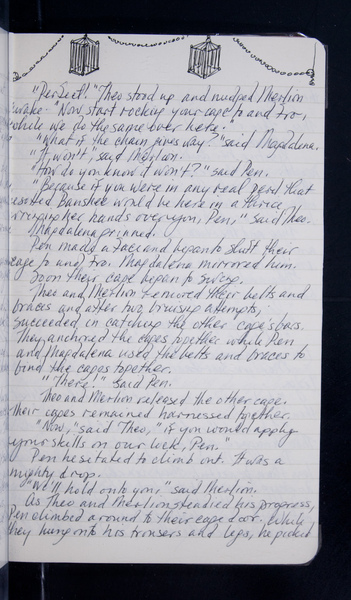 "Perfect!" Theo stood up and nudged Merlion
awake. "Now start rocking your cage to and fro,
while we do the same over here."
"What if the chain gives way?" said Magdalena.
"It won't," said Merlion.
"How do you know it won't?" said Pen.
"Because if you were in any real peril that
Banshee would be here in a thrice
wringing her hands over you, Pen," said Theo.
Magdalena grinned.
Pen made a face and began to shift their
cage to and fro. Magdalena mirrored him.
Soon their cage began to swing.
Theo and Merlion removed their belts and
braces and after two bruising attempts,
succeeded in catching the other cage's bars.
They anchored the cages together while Pen
and Magdalena used the belts and braces to
bind the cages together.
"There!" said Pen.
Theo and Merlion released the other cage.
Their cages remained harnessed together.
"Now," said Theo, "if you would apply
your skills on our lock, Pen."
Pen hesitated to climb out. It was a
mighty drop.
"We'll hold onto you," said Merlion.
As Theo and Merlion steadied his progress,
Pen climbed around to their cage door. While
they hung onto his trousers and legs, he picked